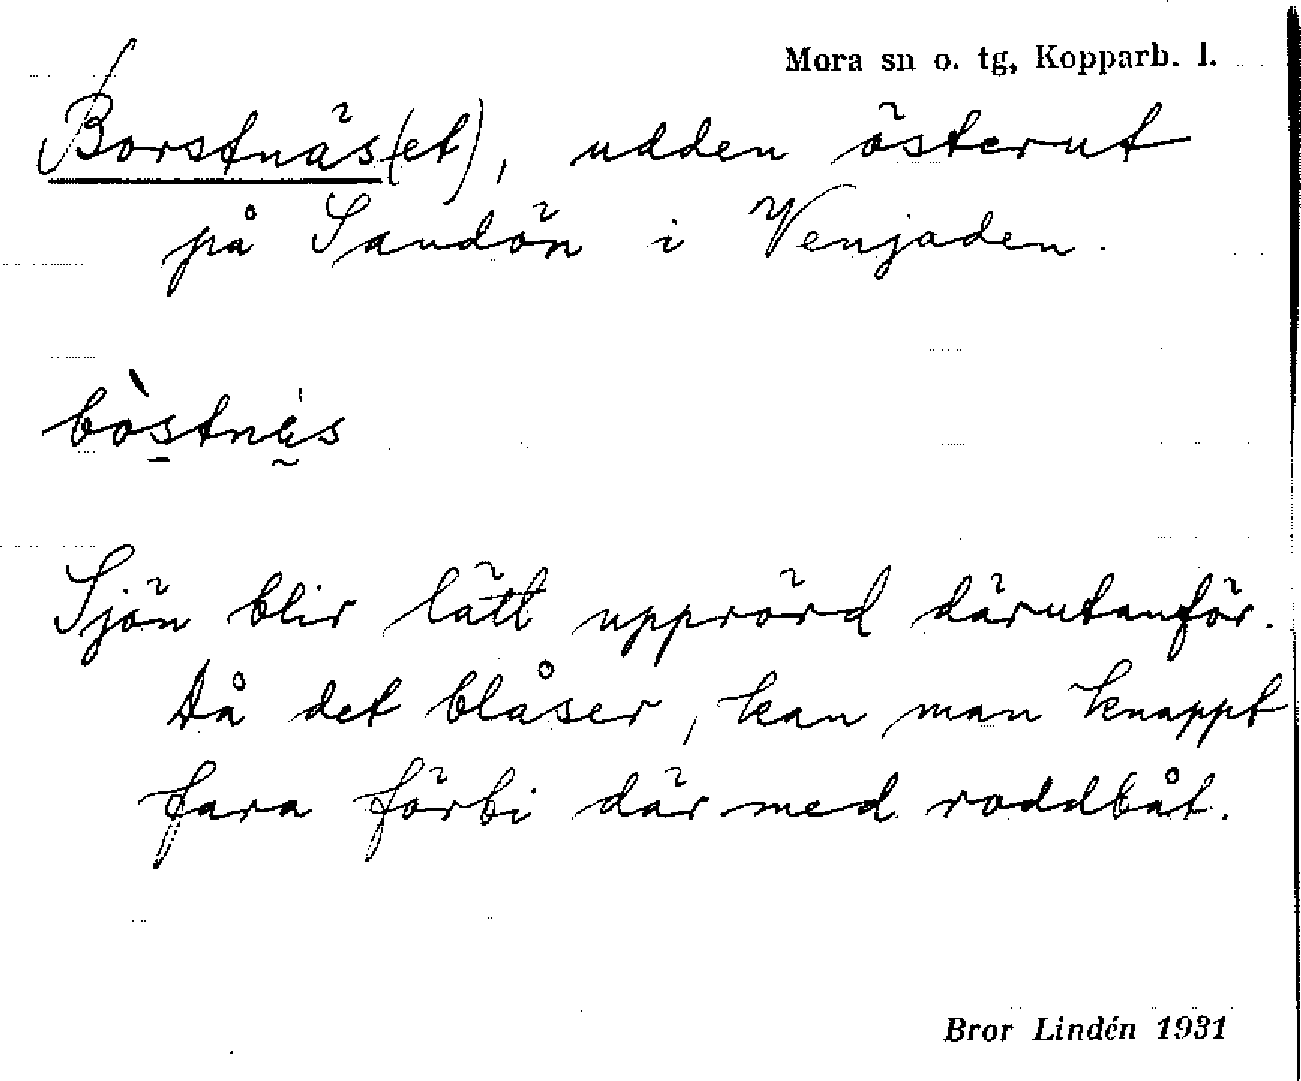 Mora sn o. tg, Kopparb. l.
Borstnäs(et), udden österut
på Sandön i Venjaden.
bòstnès
Sjön blir lätt upprörd därutanför.
Då det blåser, kan man knappt
fara förbi där med roddbåt.
Bror Lindén 1931